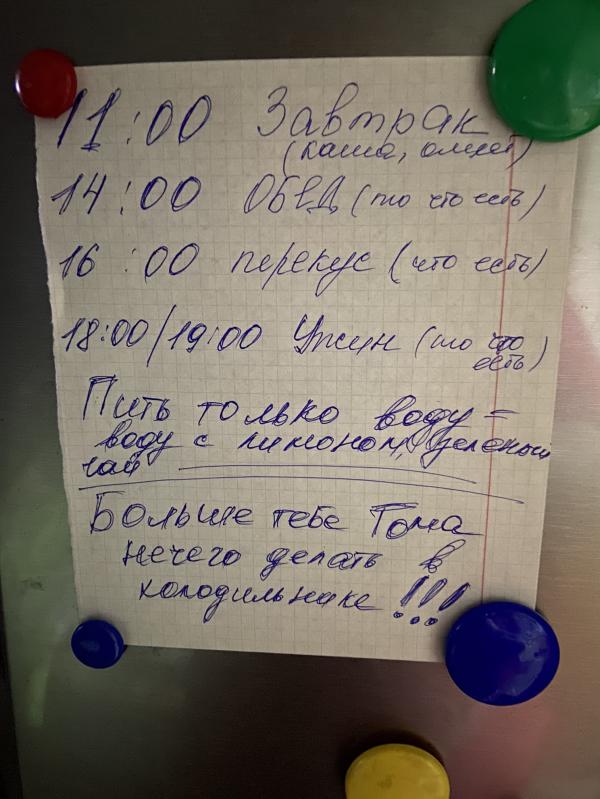 11:00 Завтрак
(каша, омлет)
14:00 ОБЕД (то что есть)
16:00 перекус (что есть)
18:00/19:00 Ужин (то что
есть)
Пить только воду =
воду с лимоном, зеленый
чай
Больше тебе Тома
нечего делать в
холодильнике!!!